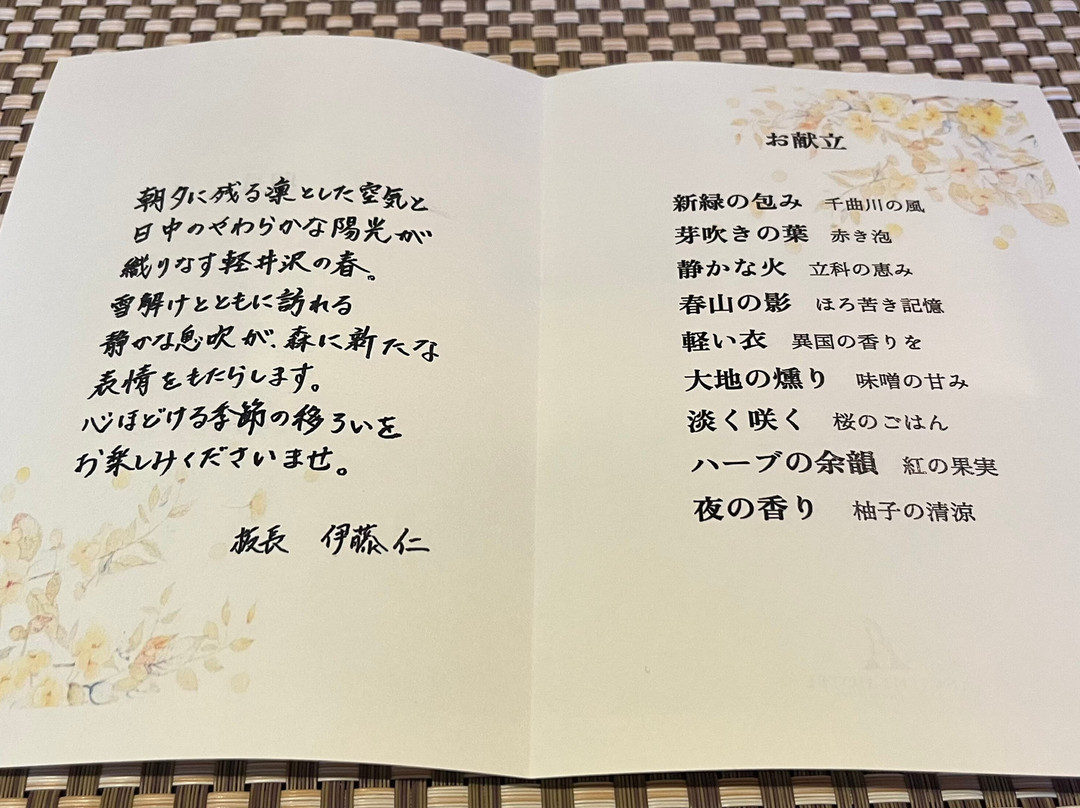 朝夕に残る凛とした空気と
日中のやわらかな陽光が
織りなす軽井沢の春。
雪解けとともに訪れる
静かな息吹が、森に新たな
表情をもたらします。
心ほどける季節の移ろいを
お楽しみくださいませ。
板長 伊藤仁
お献立
新緑の包み 千曲川の風
芽吹きの葉 赤き泡
静かな火 立科の恵み
春山の影 ほろ苦き記憶
軽い衣 異国の香りを
大地の燻り 味噌の甘み
淡く咲く 桜のごはん
ハーブの余韻 紅の果実
夜の香り 柚子の清涼